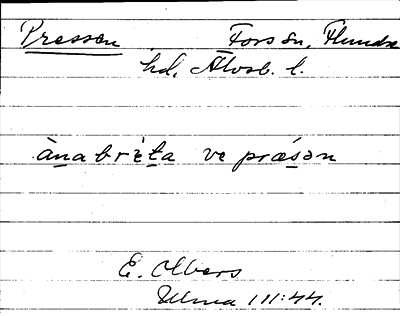 Pressen Fors sn, Flundre
hd, Älvsb. l.
àna brèta ve præsən
E. Olbers
Ulma 111:44.